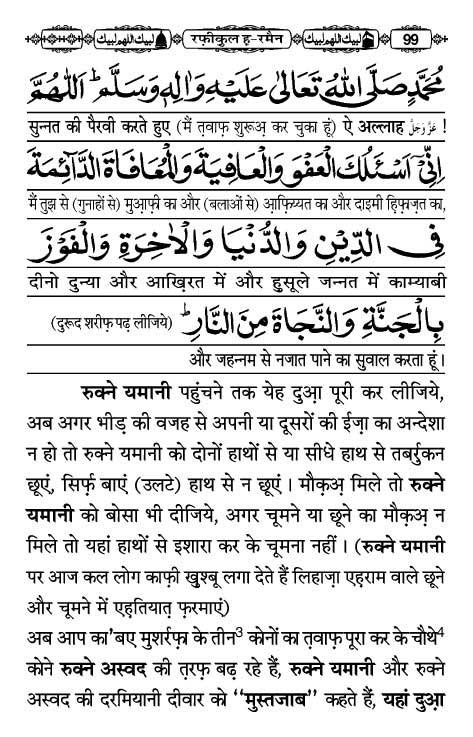 لبيك اللهم لبيك رफ़ीकुल ह-रमैन لبيك اللهم لبيك 99
مُحَمَّدٍ صَلَّى اللهُ تَعَالٰى عَلَيْهِ وَاٰلِهٖ وَسَلَّمَ ؕ اَللّٰهُمَّ
सुन्नत की पैरवी करते हुए (मैं त़वाफ़ शुरूअ़ कर चुका हूं) ऐ अल्लाह عَزَّوَجَلَّ !
اِنِّىْٓ اَسْئَلُكَ الْعَفْوَ وَالْعَافِيَةَ وَالْمُعَافَاةَ الدَّآئِمَةَ
मैं तुझ से (गुनाहों से) मुआ़फ़ी का और (बलाओं से) आ़फ़िय्यत का और दाइमी ह़िफ़ाज़त का,
فِى الدِّيْنِ وَالدُّنْيَا وَالْاٰخِرَةِ وَالْفَوْزَ
दीनो दुन्या और आख़िरत में और ह़ुसूले जन्नत में काम्याबी
بِالْجَنَّةِ وَالنَّجَاةَ مِنَ النَّارِ ؕ (दुरूद शरीफ़ पढ़ लीजिये)
और जहन्नम से नजात पाने का सुवाल करता हूं।
रुक्ने यमानी पहुंचने तक येह दुआ़ पूरी कर लीजिये,
अब अगर भीड़ की वजह से अपनी या दूसरों की ईज़ा का अन्देशा
न हो तो रुक्ने यमानी को दोनों हाथों से या सीधे हाथ से तबर्रुकन
छूएं, सिर्फ़ बाएं (उलटे) हाथ से न छूएं। मौक़अ़ मिले तो रुक्ने
यमानी को बोसा भी दीजिये, अगर चूमने या छूने का मौक़अ़ न
मिले तो यहां हाथों से इशारा कर के चूमना नहीं। (रुक्ने यमानी
पर आज कल लोग काफ़ी खुश्बू लगा देते हैं लिहाज़ा एह़राम वाले छूने
और चूमने में एह़तियात़ फ़रमाएं)
अब आप का'बए मुशर्रफ़ा के तीन³ कोनों का त़वाफ़ पूरा कर के चौथे⁴
कोने रुक्ने अस्वद की त़रफ़ बढ़ रहे हैं, रुक्ने यमानी और रुक्ने
अस्वद की दरमियानी दीवार को ‘‘मुस्तजाब’’ कहते हैं, यहां दुआ़